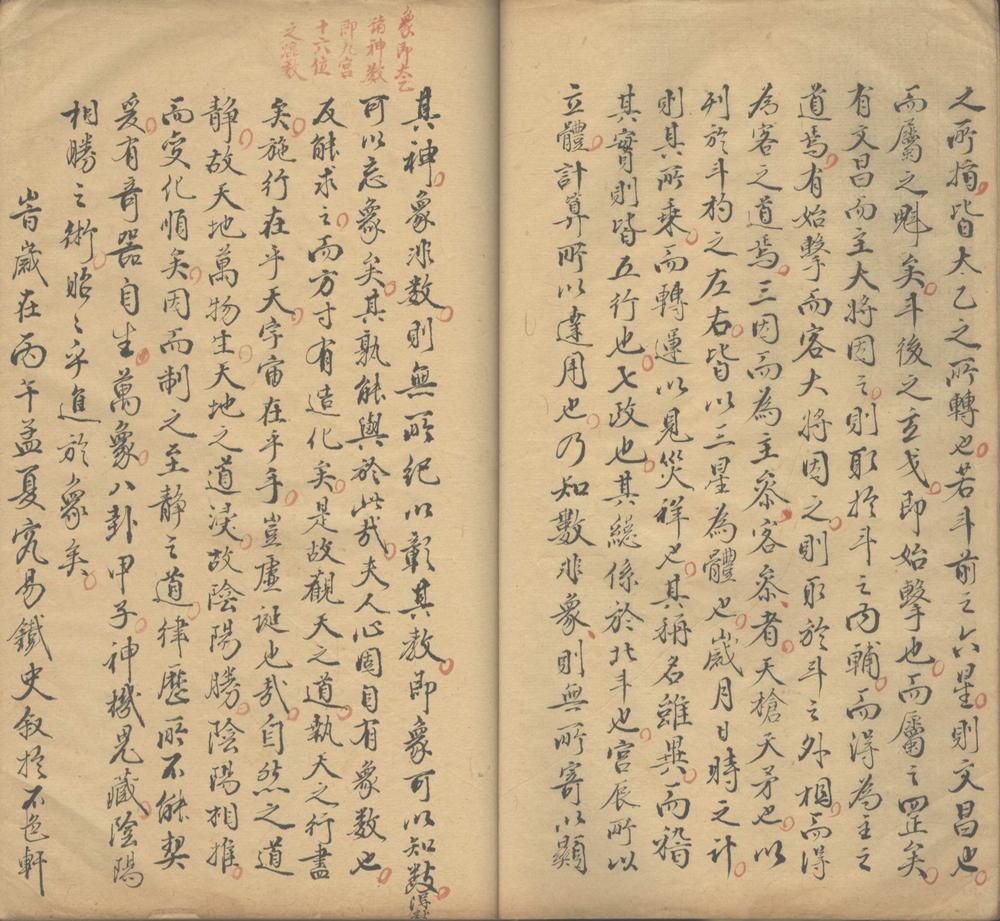 之所指皆太乙之所轉也若斗前之六星則文昌也
而屬之魁矣斗後之玄戈即始擊也而屬之罡矣
有文昌而主大將因之則取於斗之內輔而得為主之
道焉有始擊而客大將因之則取於斗之外相而得
為客之道焉三因而為主參客參者天槍天矛也以
列於斗杓之左右皆以三星為體也歲月日時之計
則其所乘而轉運以見災祥也其稱名雖異而
其實則皆五行也七政也其總係於北斗也宮辰所以
立體計算所以達用也乃知數非象則無所寄以顯
象即太乙
諸神數
即九宮
十六位
之算數
其神象非數則無所紀以彰其教即象可以知數得數
可以忘象矣其孰能與於此哉夫人心固自有象數也
反能求之而方寸有造化矣是故觀天之道執天之行盡
矣施行在乎天宇宙在乎手豈虛誕也哉自然之道
靜故天地萬物生天地之道浸故陰陽勝陰陽相推
而變化順矣因而制之至靜之道律歷所不能契
爰有奇器自生萬象八卦甲子神機鬼藏陰陽
相勝之術昭〻乎進於象矣
峕歲在丙午孟夏容易鐵史叙於不色軒